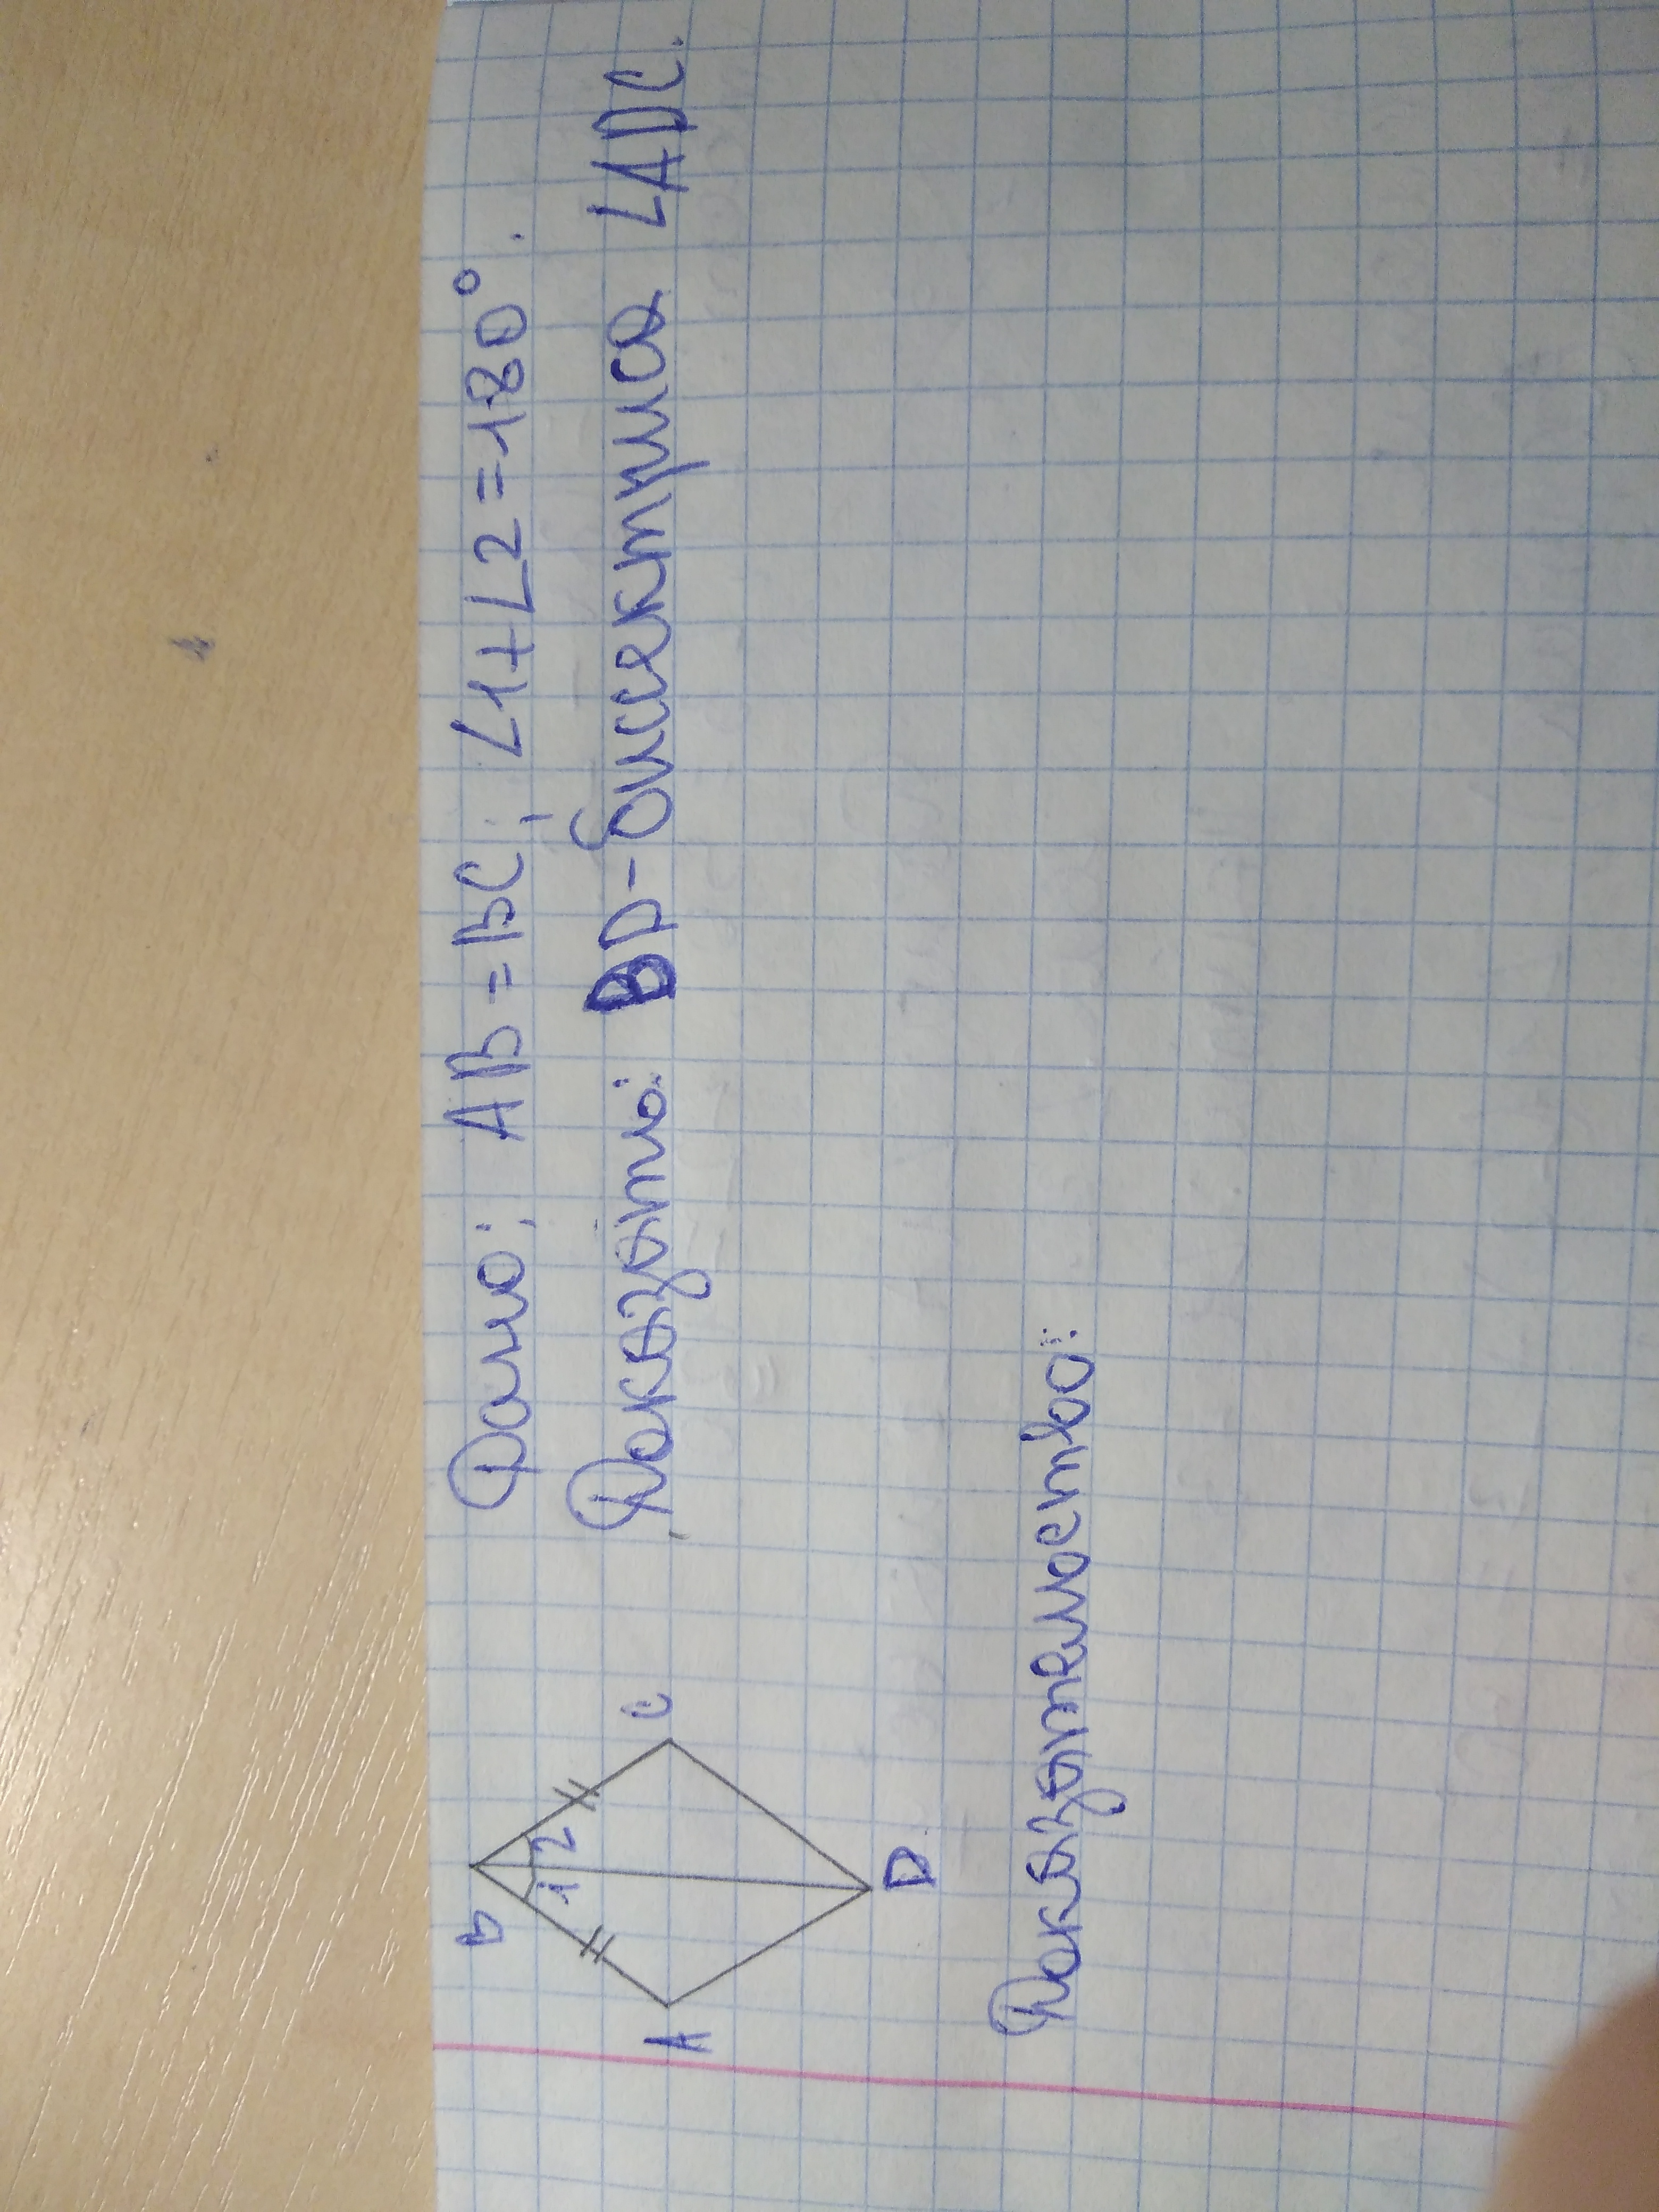 Дано: AB = BC; ∠1+∠2=180°.
Доказать: BD-биссектриса ∠ADC.
B
1 2
A
C
D
Доказательство: